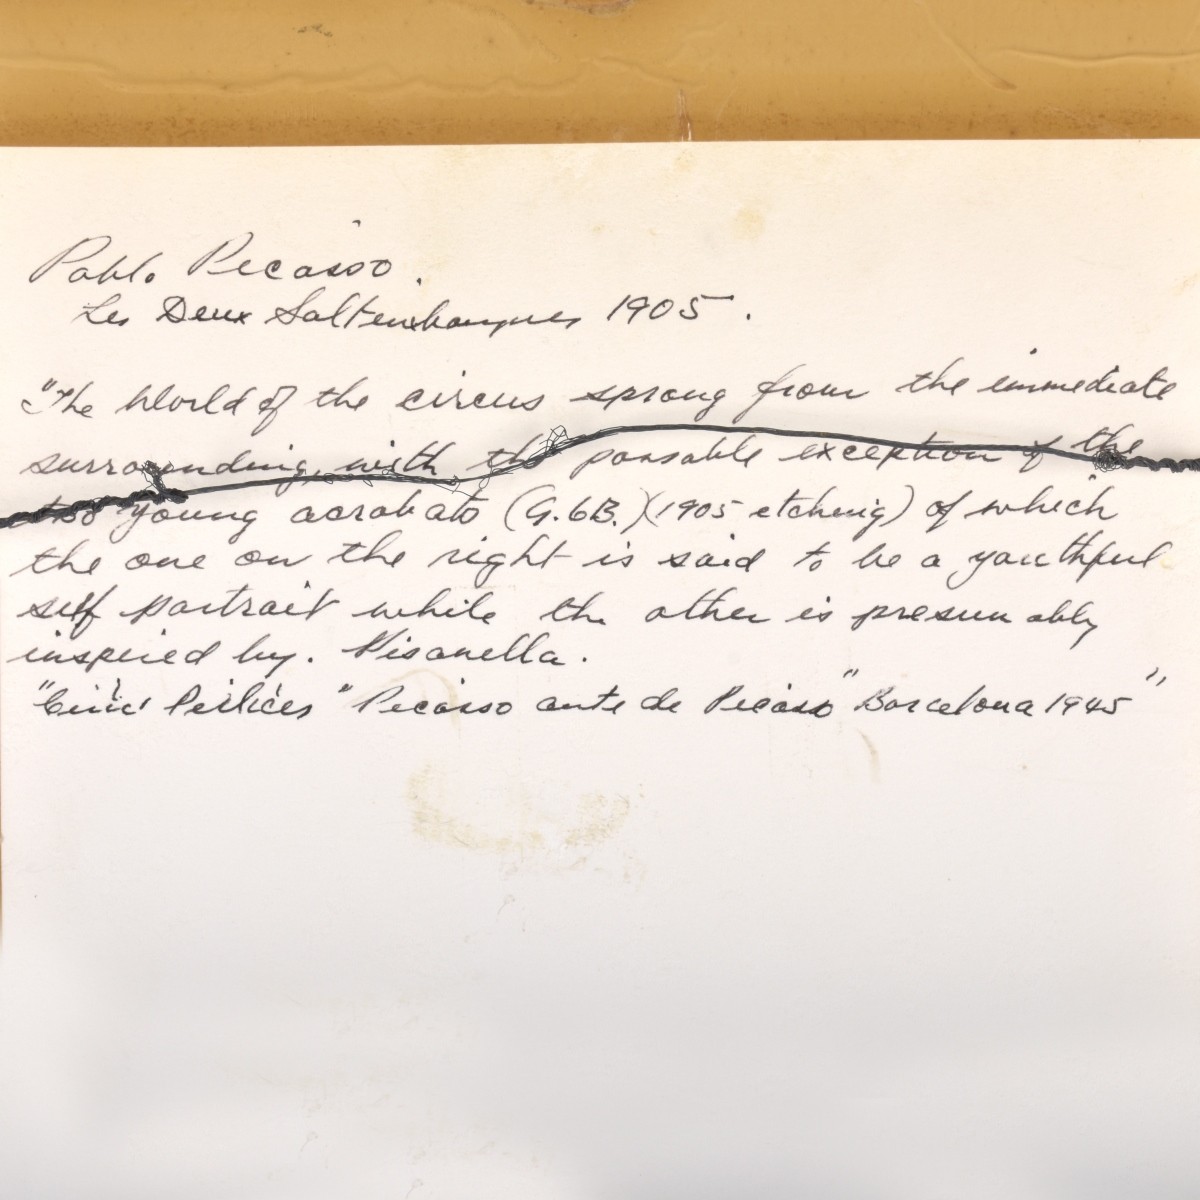 Pablo Picasso.
Les Deux Saltimbanques 1905.
"The World of the circus sprang from the immediate
surrounding, with the possable exception of the
two young acrobats (G.6B.) (1905 etching) of which
the one on the right is said to be a youthful
self portrait while the other is presumably
inspired by. Pisanella.
" " Picasso ante de Picasso" Barcelona 1945"